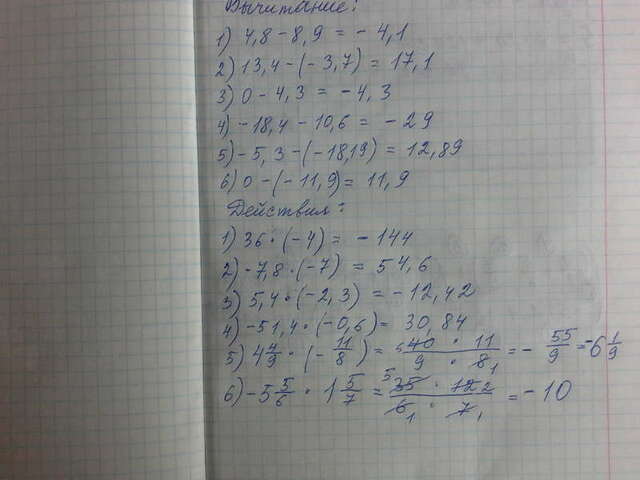 Вычитание:
1) 4,8 - 8,9 = - 4,1
2) 13,4 - (- 3,7) = 17,1
3) 0 - 4,3 = - 4,3
4) - 18,4 - 10,6 = - 29
5) - 5,3 - (- 18,19) = 12,89
6) 0 - (- 11,9) = 11,9
Действия:
1) 36 · (- 4) = - 144
2) - 7,8 · (- 7) = 54,6
3) 5,4 · (- 2,3) = - 12,42
4) - 51,4 · (- 0,6) = 30,84
5) 4 4/9 · (- 11/8) = 5 40 · 11 / 9 · 8 1 = - 55/9 = - 6 1/9
6) - 5 5/6 · 1 5/7 = 5 35 · 12 2 / 6 1 · 7 1 = - 10